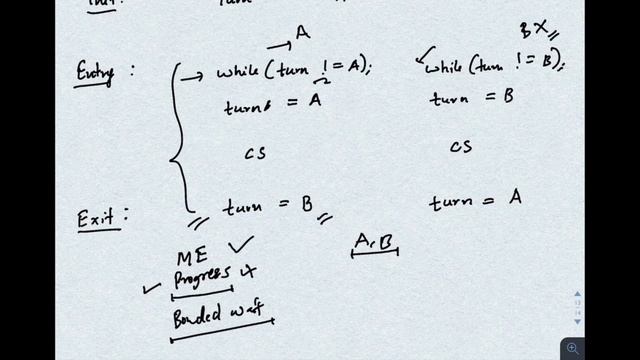 A
B X
Entry : while (turn != A); while (turn != B);
turn = A turn = B
CS CS
Exit : turn = B turn = A
ME ✓ A, B
✓ Progress x
Bonded wait